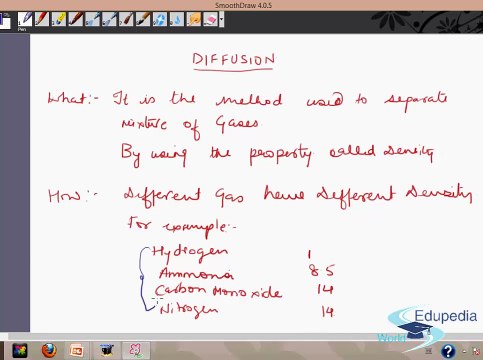 SmoothDraw 4.0.5
Pen
DIFFUSION
What:- It is the method used to separate
mixture of Gases.
By using the property called Density
How:- Different Gas have Different Density
For example:-
Hydrogen 1
Ammonia 8 5
Carbon Monoxide 14
Nitrogen 14
Edupedia
World